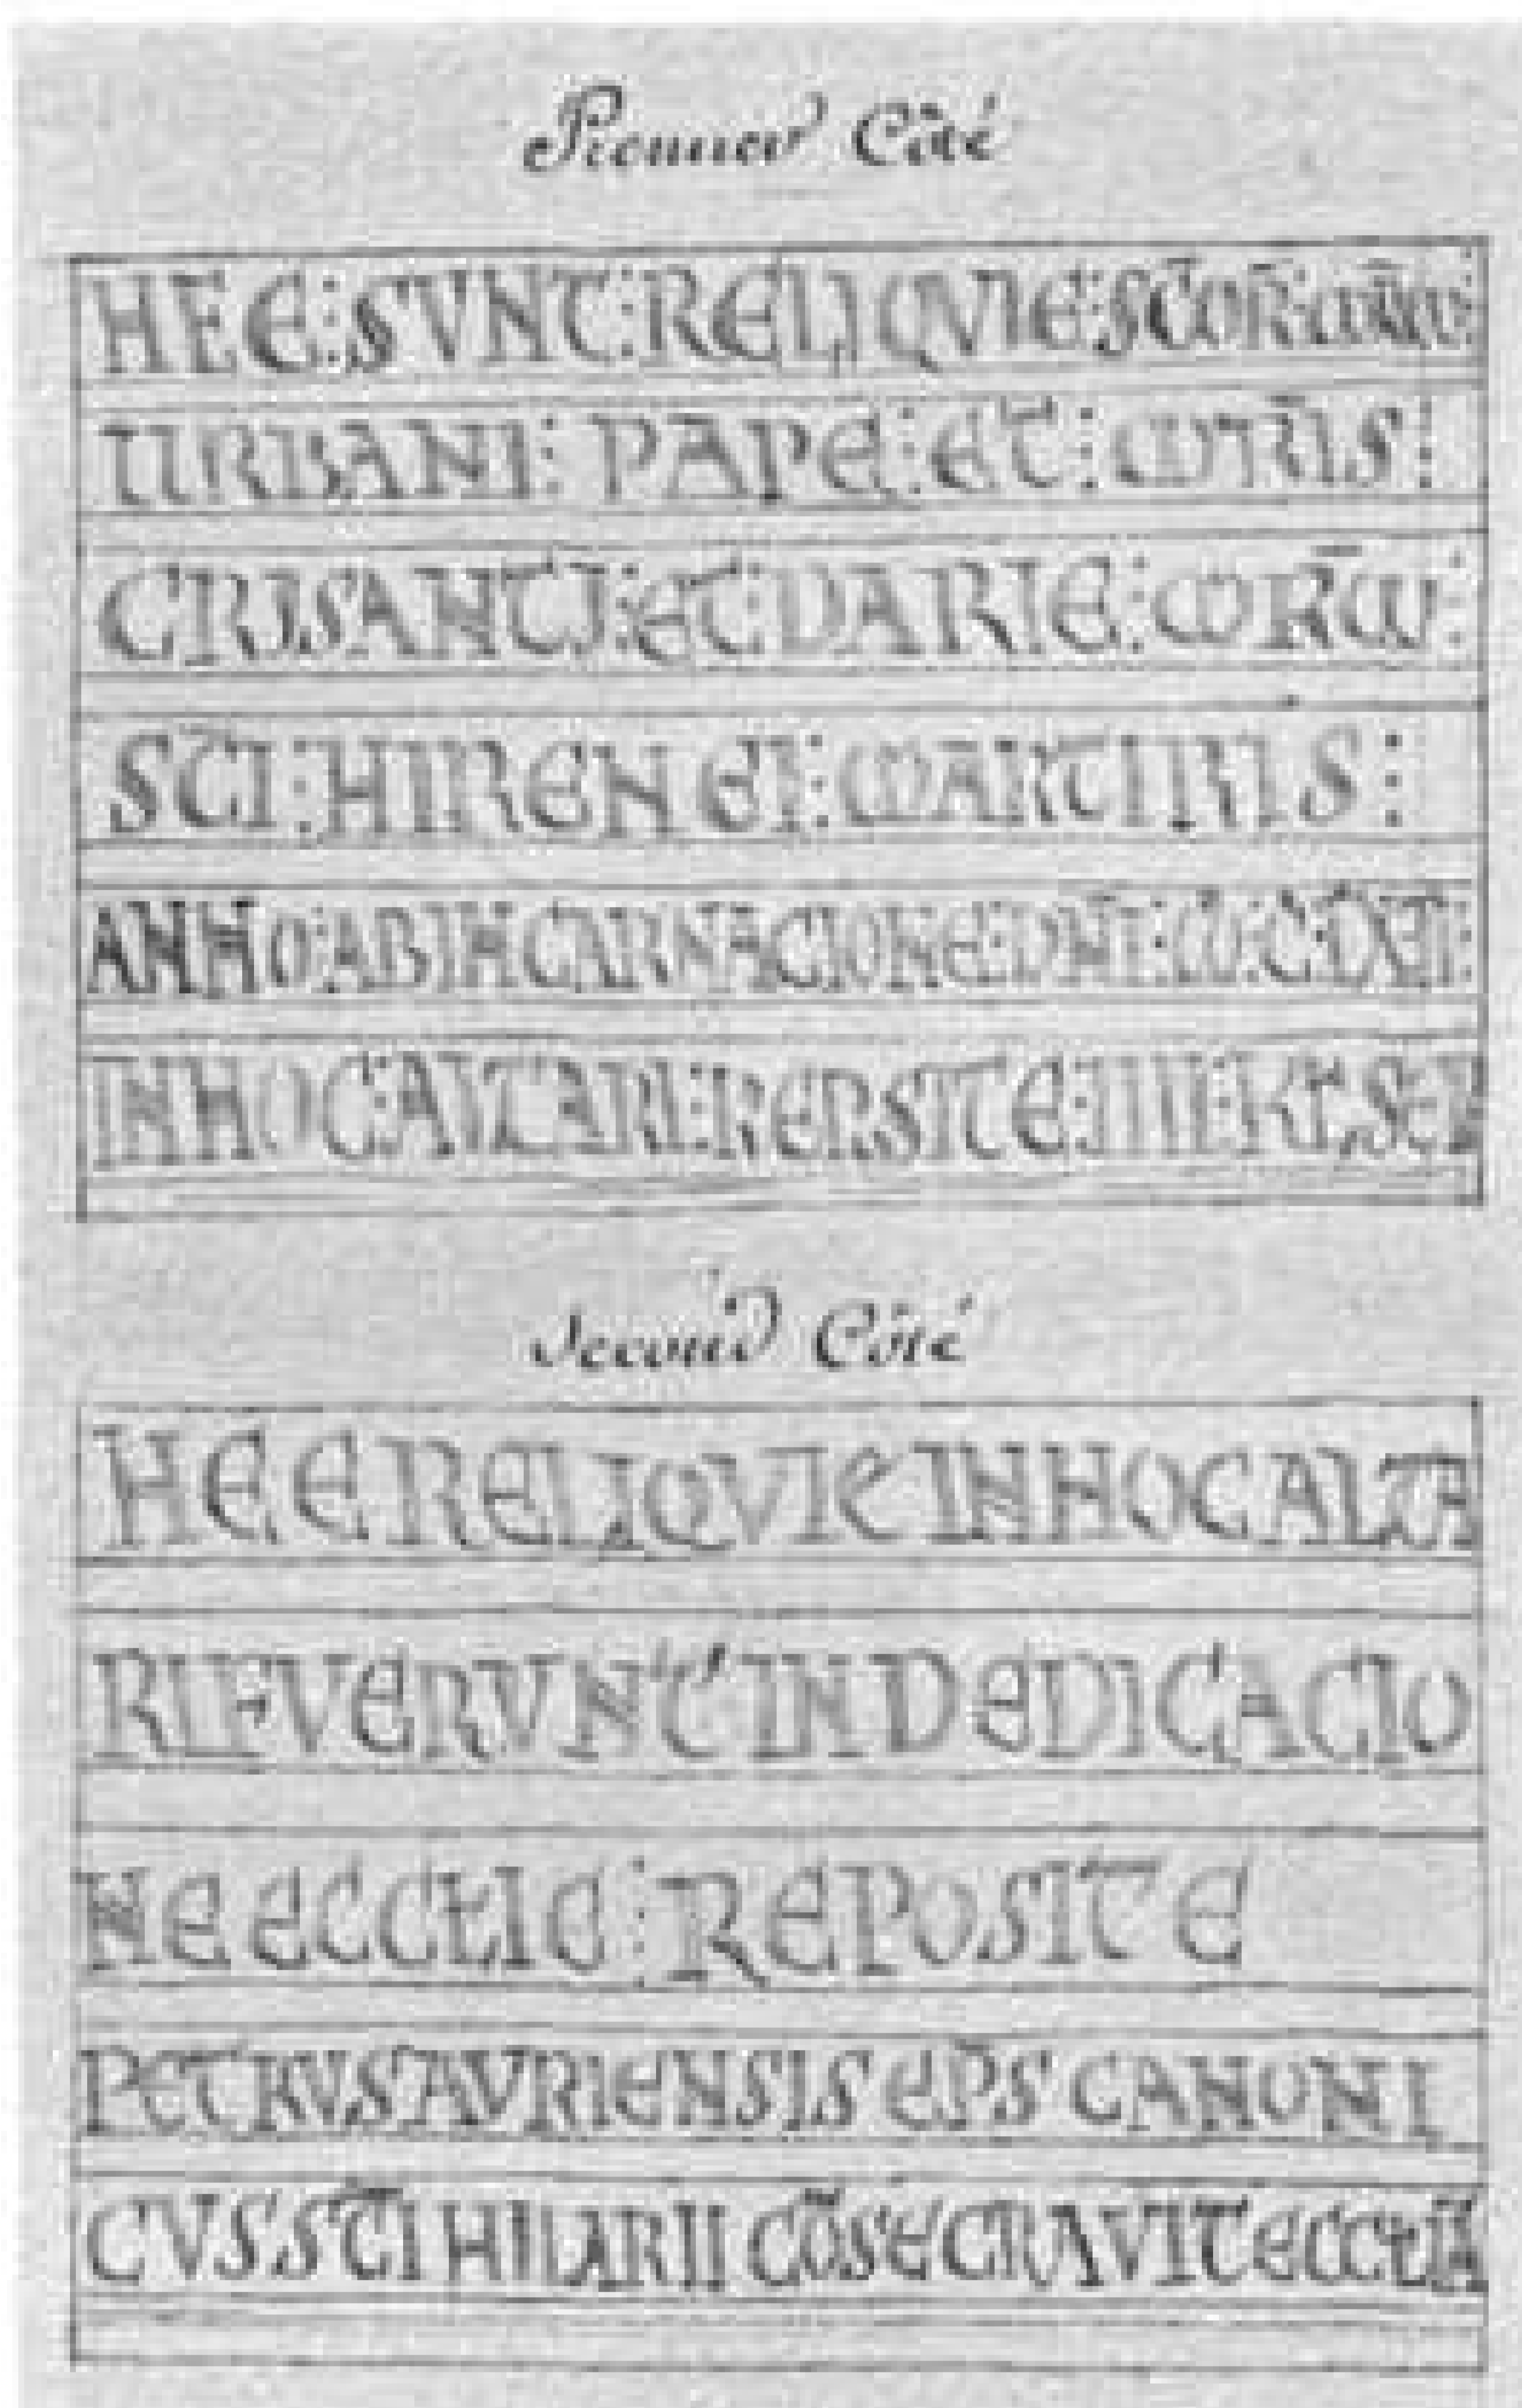 Premier Côté
HEE : SVNT : RELIQVIE : SCOR̄ :
URBANI : PAPE : ET : MR̄IS :
CRISANTI : ET : DARIE : MR̄M :
SC̄I : HIRENEI : MARTIRIS :
ANNO : AB INCARNACIONE : DN̄I : M : C :
IN HOC : ALTARI : REPSITE : IIII : KL̄ :
Second Côté
HEE RELIQVIE IN HOC ALTA
RI FVERVNT IN DEDICACIO
NE ECCLIE : REPOSITE
PETRVS AVRIENSIS EP̄S CANONI
CVS SC̄I HILARII CŌSECRAVIT ECCLIĀ